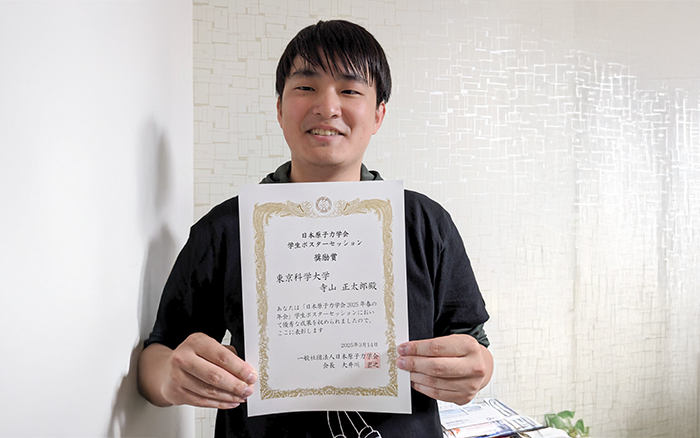 日本原子力学会
学生ポスターセッション
奨励賞
東京科学大学
寺山 正太郎殿
あなたは「日本原子力学会2025年春の
年会」学生ポスターセッションにおい
て優秀な成果を収められましたので、
ここに表彰します
2025年3月14日
一般社団法人日本原子力学会
会長 大井川